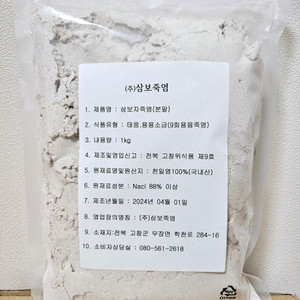 (주)삼보죽염
1. 제품명 : 삼보자죽염(분말)
2. 식품유형 : 태움,용융소금(9회용융죽염)
3. 내용량 : 1kg
4. 제조및영업신고 : 전북 고창위식품 제9호
5. 원재료명및원산지 : 천일염100%(국내산)
6. 원재료성분 : Nacl 88% 이상
7. 제조년월일 : 2024년 04월 01일
8. 영업장의명칭 : (주)삼보죽염
9. 소재지:전북 고창군 무장면 학천로 284-16
10. 소비자상담실 : 080-561-2618